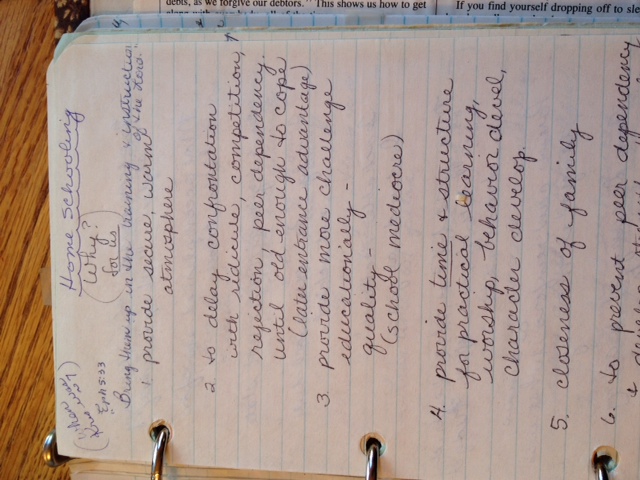 debts, as we forgive our debtors." This shows us how to get
If you find yourself dropping off to sle
Home Schooling
(Why?
for us)
Eph 5:33
Bring them up in the training & instruction
of the Lord!
1. provide secure, warm
atmosphere
2. to delay confrontation
with ridicule, competition,
rejection, peer dependency
until old enough to cope
(later entrance advantage)
3. provide more challenge
educationally -
quality -
(school mediocre)
4. provide time & structure
for practical learning,
worship, behavior devel,
character develop.
5. closeness of family
6. to prevent peer dependency